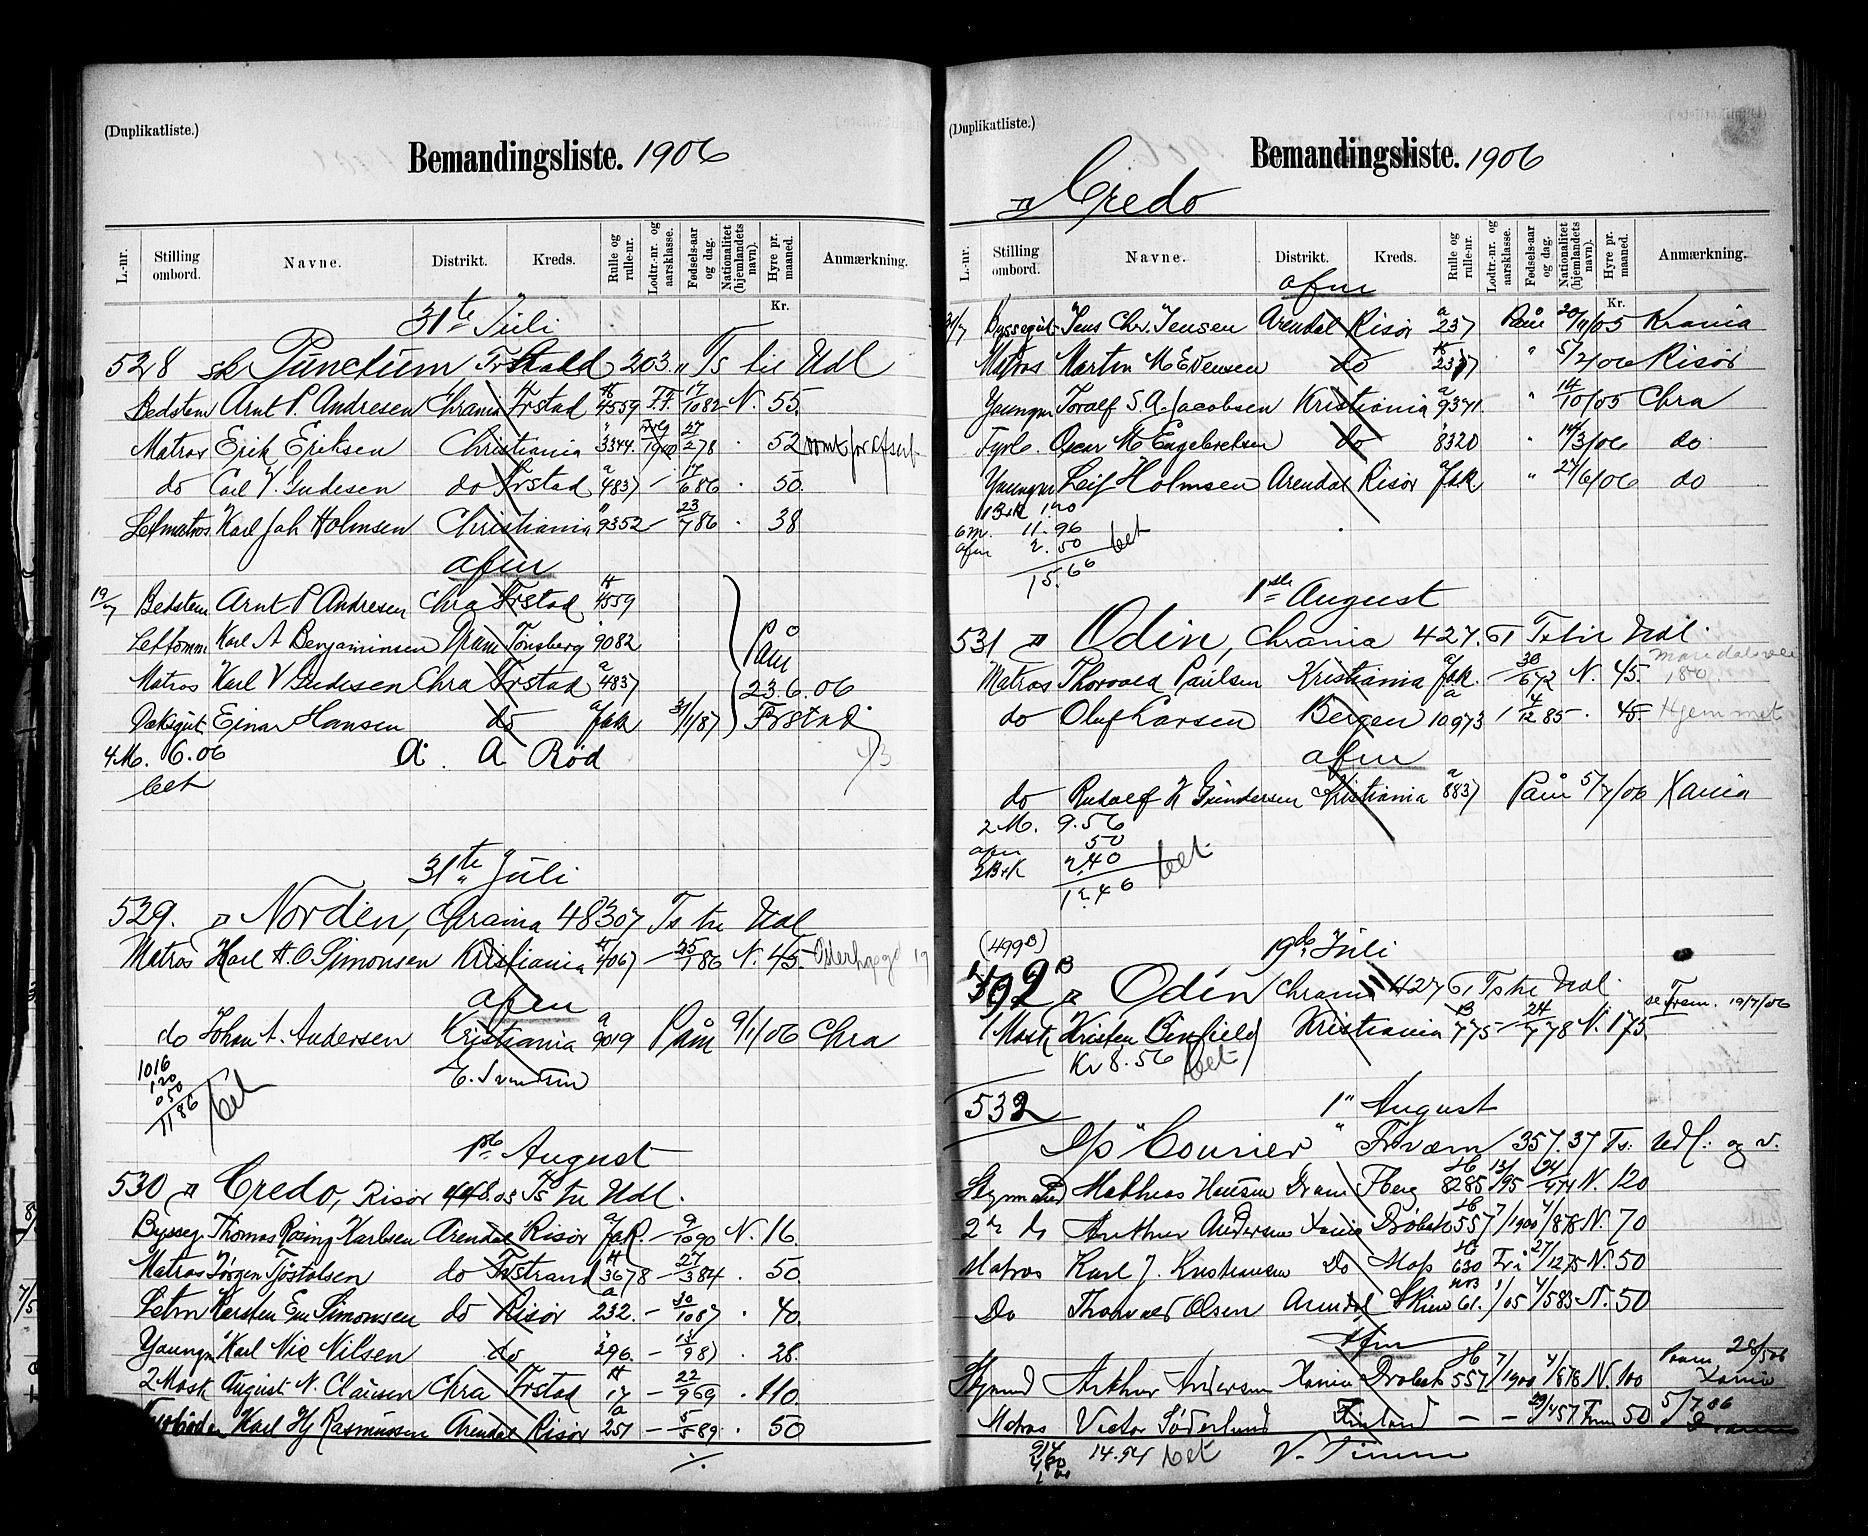 (Duplikatliste.)
Bemandingsliste. 1906
L.-nr. Stilling ombord. Navne. Distrikt. Kreds. Rulle og rulle-nr. Lodtr.-nr. og aarsklasse. Fødsels-aar og dag. Nationalitet (hjemlandets navn). Hyre pr. maaned. Anmærkning.
Kr.
31te Juli
528 sk Punctum Frstad 203 Ts til Udl
Bedstem Arnt P. Andresen Chrania Frstad 4559 F.F. 17/10 82 N. 55.
Matros Erik Eriksen Christiania 3344. 1900 27/2 78 52
do Carl V. Gudesen do Frstad 4837 – 17/6 86 50.
Letmatros Karl Joh Holmsen Christiania 9352 – 23/7 86 38
afm
19/7 Bedstem Arnt P Andresen Chra Frstad 4559
Lettomm Karl A Benjaminsen Dram Tønsberg 9082 Påm
Matros Karl V Gudesen Chra Frstad 4837 23.6.06
Dæksgut Einar Hansen do afsk 31/1/87 Frstad
4 M. 6.06 A. A Rød
bet
31te Juli
529. Norden, Chrania 483.07 Ts til Udl
Matros Karl H. O Simonsen Kristiania 4067 – 25/1 86 N. 45.
afm
do Johan A. Andersen Kristiania 9019 Påm 9/1/06 Chra
1016 E. Svendsen
120
050
1186 bet
1ste August
530 Credo, Risör 448.03 Ts til Udl.
Bysseg Thomas Röinf Karlsen Arendal Risör – 9/10 90 N. 16.
Matros Jörgen Tjöstolsen do Tvstrand 3678 – 27/3 84 50
Letm Kersten Em Simonsen do Risör 232. – 30/10 87 40.
Youngm Karl Nic Nilsen do 296. – 28.
2 Mask August N. Clausen Chra Frstad 17 – 22/9 69 110.
Karl Hj Rasmussen Arendal Risör 251 – 5/5 89 50
./.
(Duplikatliste.)
Bemandingsliste. 1906
Credo
L.-nr. Stilling ombord. Navne. Distrikt. Kreds. Rulle og rulle-nr. Lodtr.-nr. og aarsklasse. Fødsels-aar og dag. Nationalitet (hjemlandets navn). Hyre pr. maaned. Anmærkning.
Kr.
afm
31/7 Byssegut Jens Chr. Jensen Arendal Risör 237 Påm 20/11/05 Krania
Matros Martin M Evensen do 2337 " 5/2/06 Risör
Youngm Toralf S. A. Jacobsen Kristiania 9371 " 14/10/05 Chra
Fyrb. Oscar M Engebretsen do 8320 " 14/3/06 do
Youngm Leif Holmsen Arendal Risör " 27/6/06 do
1 B+K 1.20
6 m. 11.96
afm 2.50 bet
15.66
1ste August
531 Odin, Chrania 427.61 Ts til Udl.
Matros Thorvald Paulsen Kristiania – 30/6 72 N. 45.
do Oluf Larsen Bergen 10973 4/12 85 45.
afm
do Rudolf K Gundersen Kristiania 8837 Påm 5/7/06 Xania
2 M. 9.56
afm 50
2 B+K 2,40 bet
12.46
(499B) 19de Juli
B Odin Chrania 427 61 Ts til Udl. se Fram. 19/7/06
1 Mask Kristen Binfield Kristiania 775 – 24/7 78 N. 175.
Kr 8.56 bet
532 1" August
S/S "Courier" Frværn 357.37 Ts: Udl: og v.
Styrmand Mathias Hansen Dram Tberg 8285 13/95 N. 120
2den do Arthur Andersen Xania Dröbak 557 7/1900 4/8 78 N. 70
Matros Karl J. Kristiansen Do Moss 630 27/12 75 N. 50
Do Thorvald Olsen Arendal Skien 61. 1/05 4/5 83 N. 50
afm
Styrmd Arthur Andersen Xania Dröbak 557 7/1900 4/8 78 N. 100 Paam 28/5 06 Xania
Matros Victor Söderlund Finland – – 29/4 57 Finn 50 5/7 06 Drammen
914
480 14.94 bet V. Timm
1 00